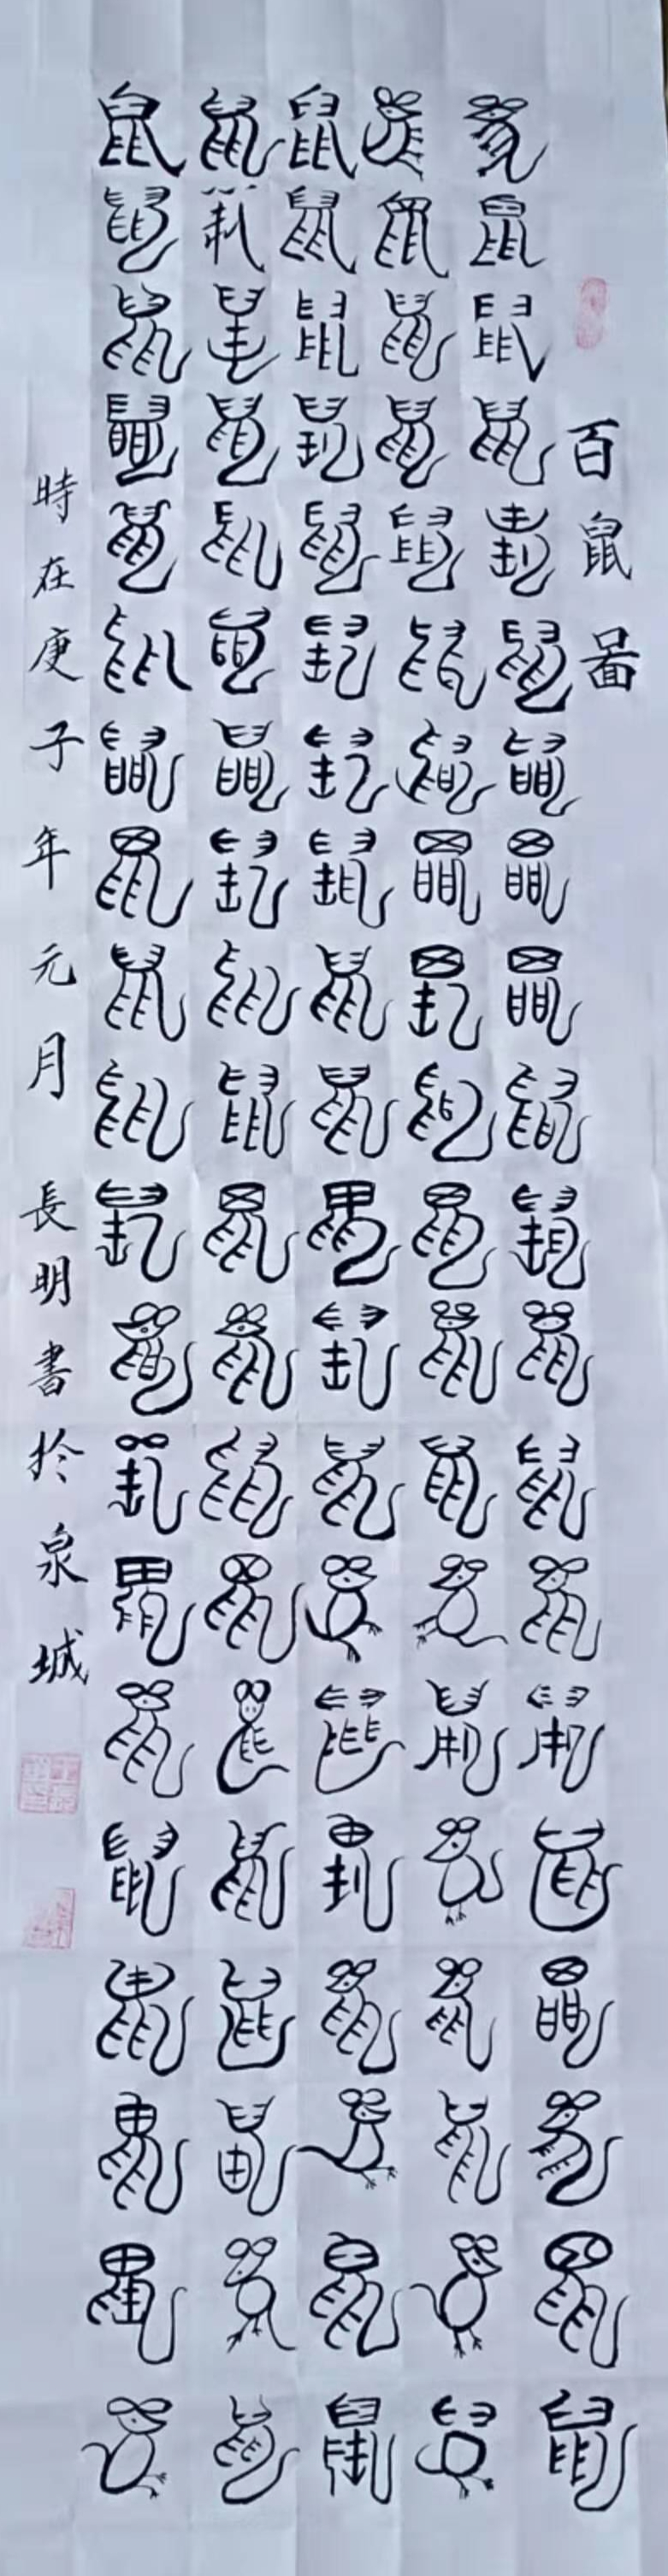 百鼠啚
鼠鼠鼠鼠鼠鼠鼠鼠鼠鼠鼠鼠鼠鼠鼠鼠鼠鼠鼠鼠
鼠鼠鼠鼠鼠鼠鼠鼠鼠鼠鼠鼠鼠鼠鼠鼠鼠鼠鼠鼠
鼠鼠鼠鼠鼠鼠鼠鼠鼠鼠鼠鼠鼠鼠鼠鼠鼠鼠鼠鼠
鼠鼠鼠鼠鼠鼠鼠鼠鼠鼠鼠鼠鼠鼠鼠鼠鼠鼠鼠鼠
鼠鼠鼠鼠鼠鼠鼠鼠鼠鼠鼠鼠鼠鼠鼠鼠鼠鼠鼠鼠
時在庚子年元月 長明書扵泉城